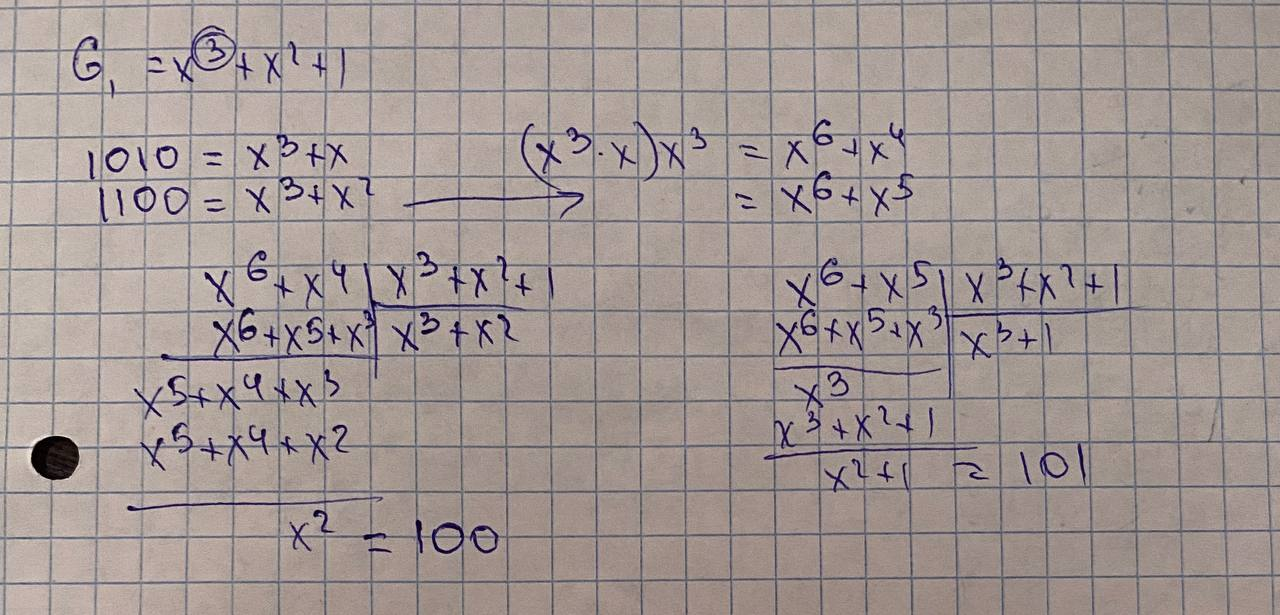 G₁ = x³ + x² + 1
1010 = x³ + x (x³ · x)x³ = x⁶ + x⁴
1100 = x³ + x² → = x⁶ + x⁵
x⁶ + x⁴ | x³ + x² + 1
x⁶ + x⁵ + x³ | x³ + x²
x⁵ + x⁴ + x³
x⁵ + x⁴ + x²
x² = 100
x⁶ + x⁵ | x³ + x² + 1
x⁶ + x⁵ + x³ | x³ + 1
x³
x³ + x² + 1
x² + 1 = 101